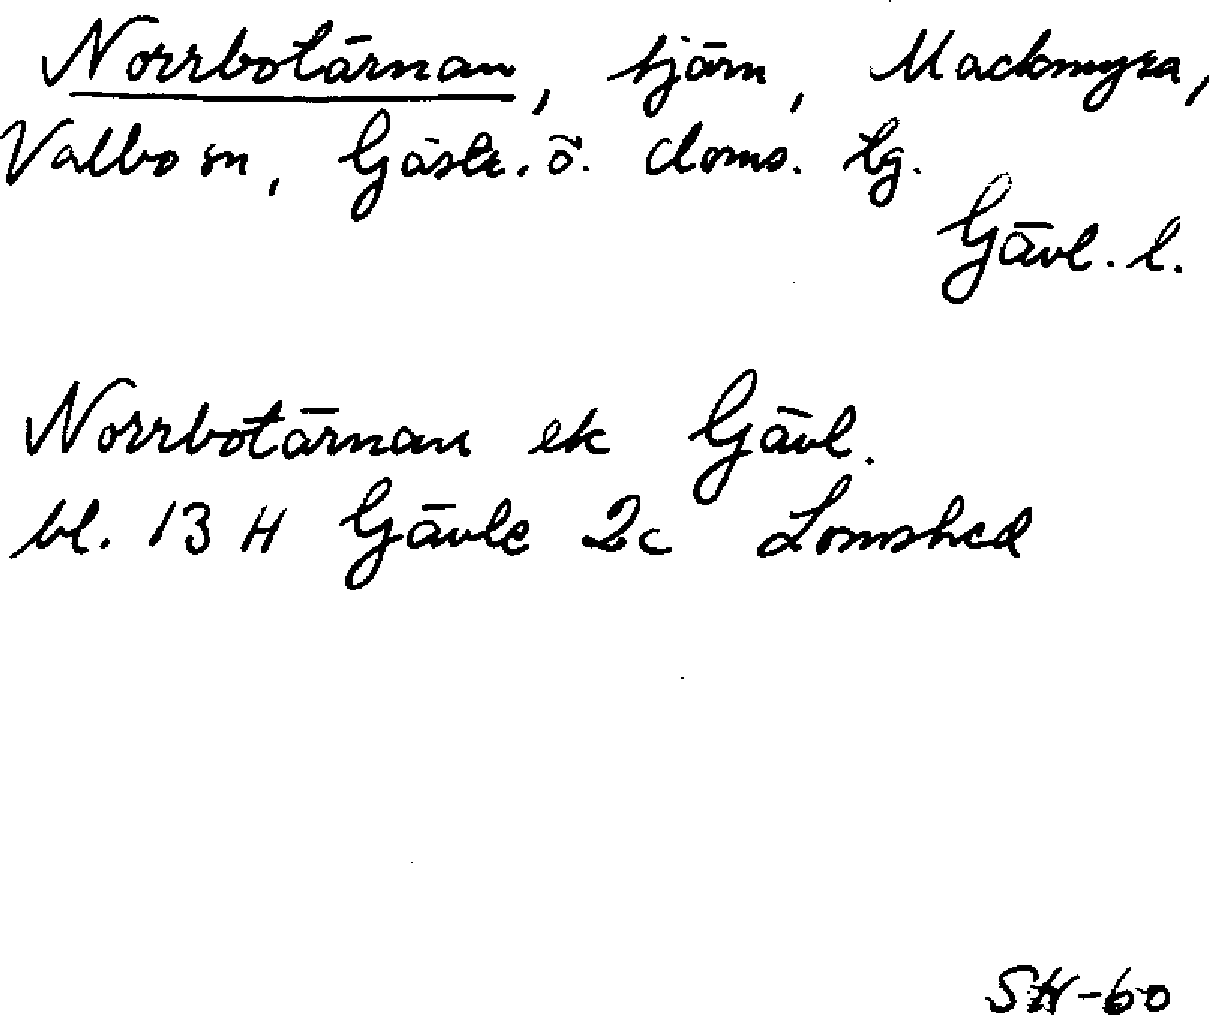 Norrbotärnan, tjärn, Mackmyra,
Valbo sn, Gästr. ö. doms. tg.
Gävl. l.
Norrbotärnan ek Gävl.
bl. 13 H Gävle 2c Lomshed
SH-60